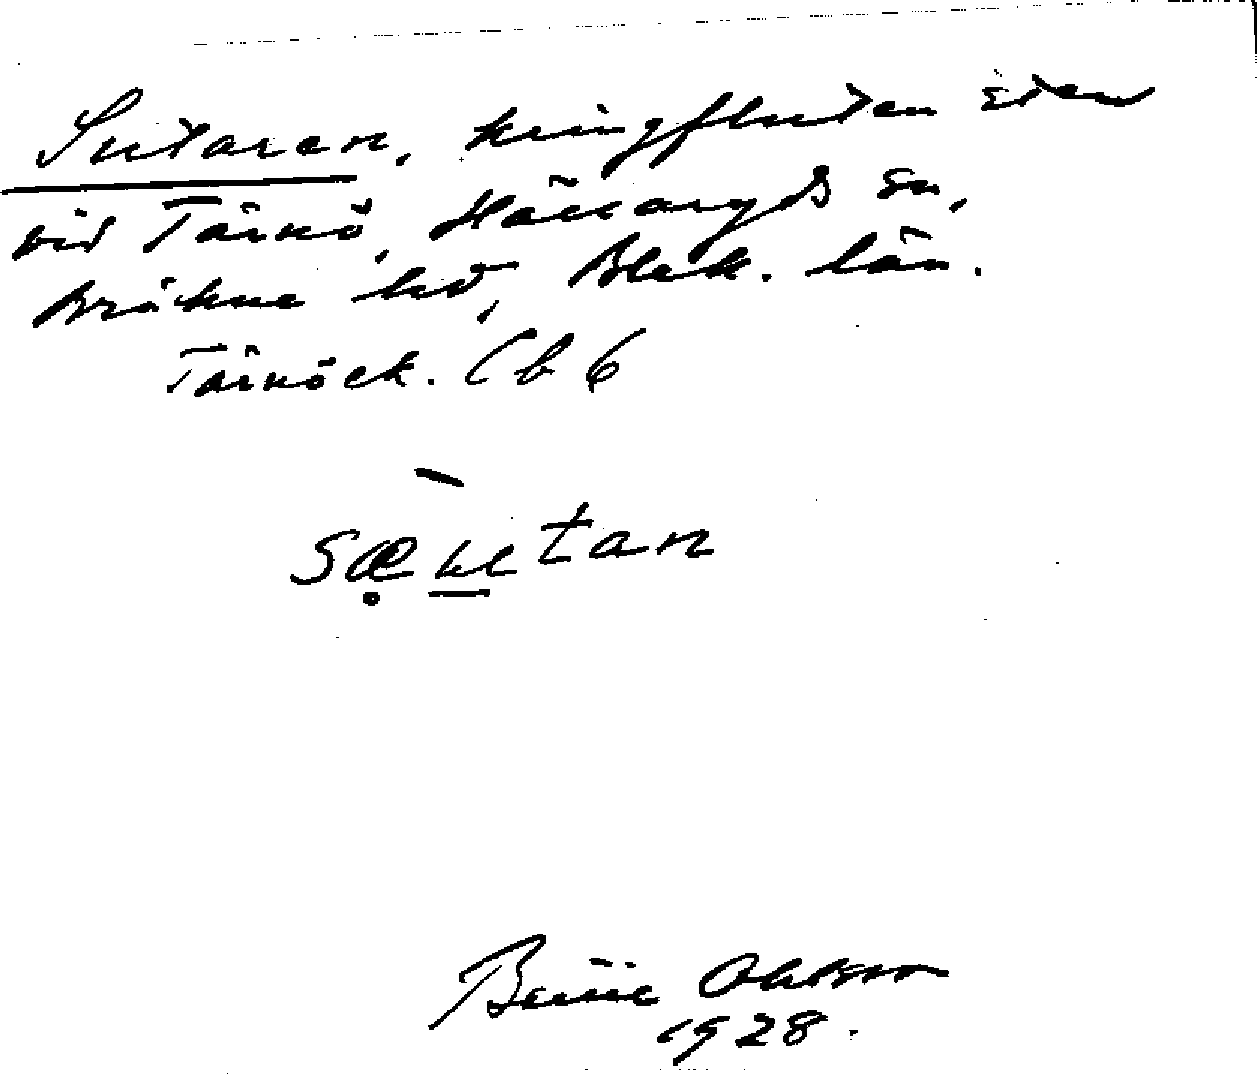 Sutaren, kringfluten sten
vid Tärnö, Hällaryds sn,
Bräkne hd, Blek. län.
Tärnöck. Cb 6
Bengt Ohlsson
1928.